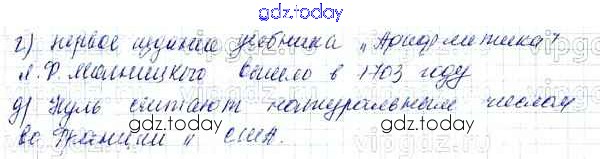 gdz.today
г) первое издание учебника "Арифметика"
Л.Ф. Магницкого вышло в 1703 году
д) Нуль считают натуральным числом
gdz.today gdz.today
во Франции и США.